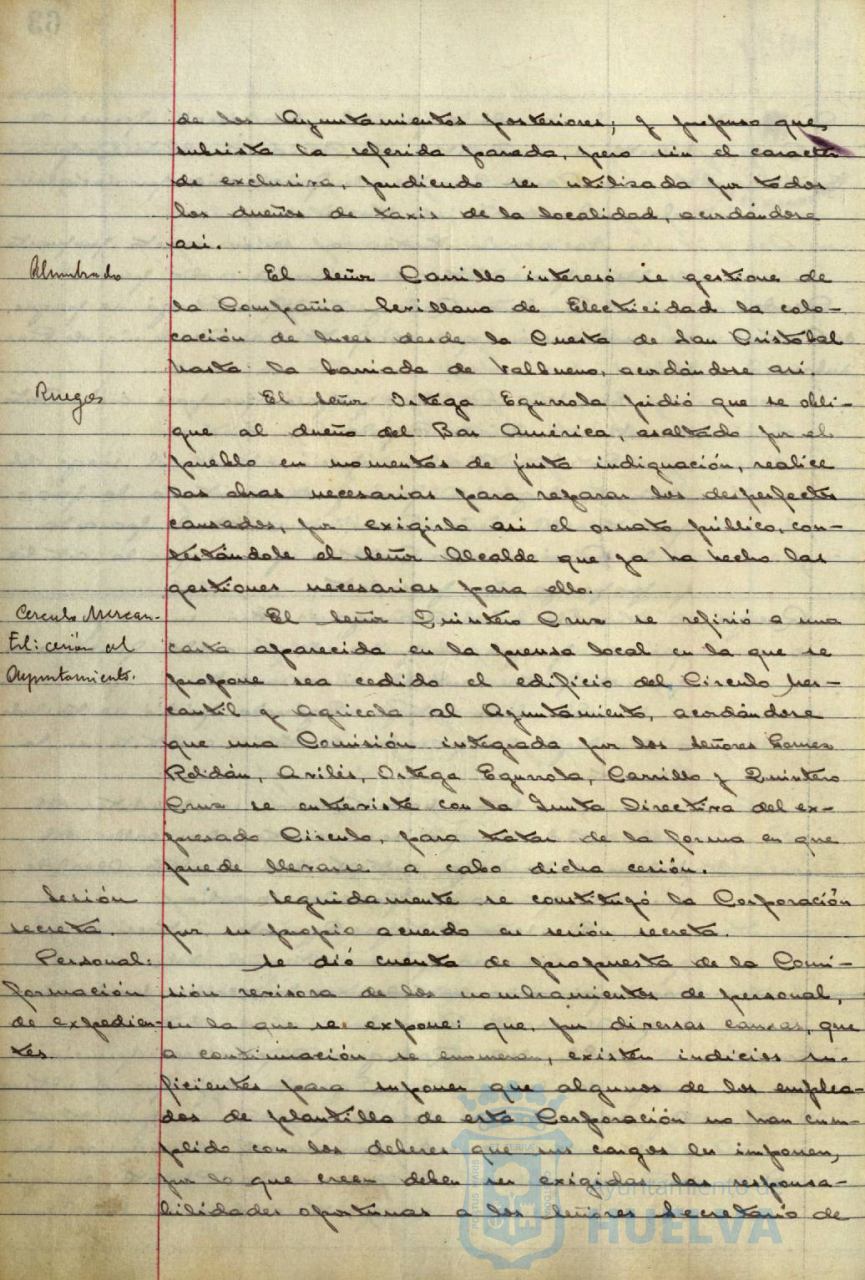 de los Ayuntamientos posteriores; y propuso que,
subsista la referida parada, pero sin el carácter
de exclusiva, pudiendo ser utilizada por todos
los dueños de taxis de la localidad, acordándose
así.
Alumbrado
El Señor Carrillo interesó se gestione de
la Compañía Sevillana de Electricidad la colo-
cación de luces desde la Cuesta de San Cristóbal
hasta la barriada de Valbueno, acordándose así.
Ruegos
El Señor Ortega Egurrola pidió que se obli-
gue al dueño del Bar América, asaltado por el
pueblo en momentos de justa indignación, realice
las obras necesarias para reparar los desperfectos
causados, por exigirlo así el ornato público, con-
testándole el Señor Alcalde que ya ha hecho las
gestiones necesarias para ello.
Circulo Mercan-
til: cesión al
Ayuntamiento.
El Señor Quintero Cruz se refirió a una
carta aparecida en la prensa local en la que se
propone sea cedido el edificio del Circulo Mer-
cantil y Agricola al Ayuntamiento, acordándose
que una Comisión integrada por los Señores Gomez
Roldán, Avilés, Ortega Egurrola, Carrillo y Quintero
Cruz se entreviste con la Junta Directiva del ex-
presado Circulo, para tratar de la forma en que
puede llevarse a cabo dicha cesión.
Sesión
secreta.
Seguidamente se constituyó la Corporación
por su propio acuerdo en sesión secreta.
Personal:
formación
de expedien-
tes.
Se dió cuenta de propuesta de la Comi-
sión revisora de los nombramientos de personal,
en la que se expone: que, por diversas causas, que
a continuación se enumeran, existen indicios su-
ficientes para suponer que algunos de los emplea-
dos de plantilla de esta Corporación no han cum-
plido con los deberes que sus cargos les imponen,
por lo que creen deben ser exigidas las responsa-
bilidades oportunas a los Señores Secretario de
Ayuntamiento de
HUELVA